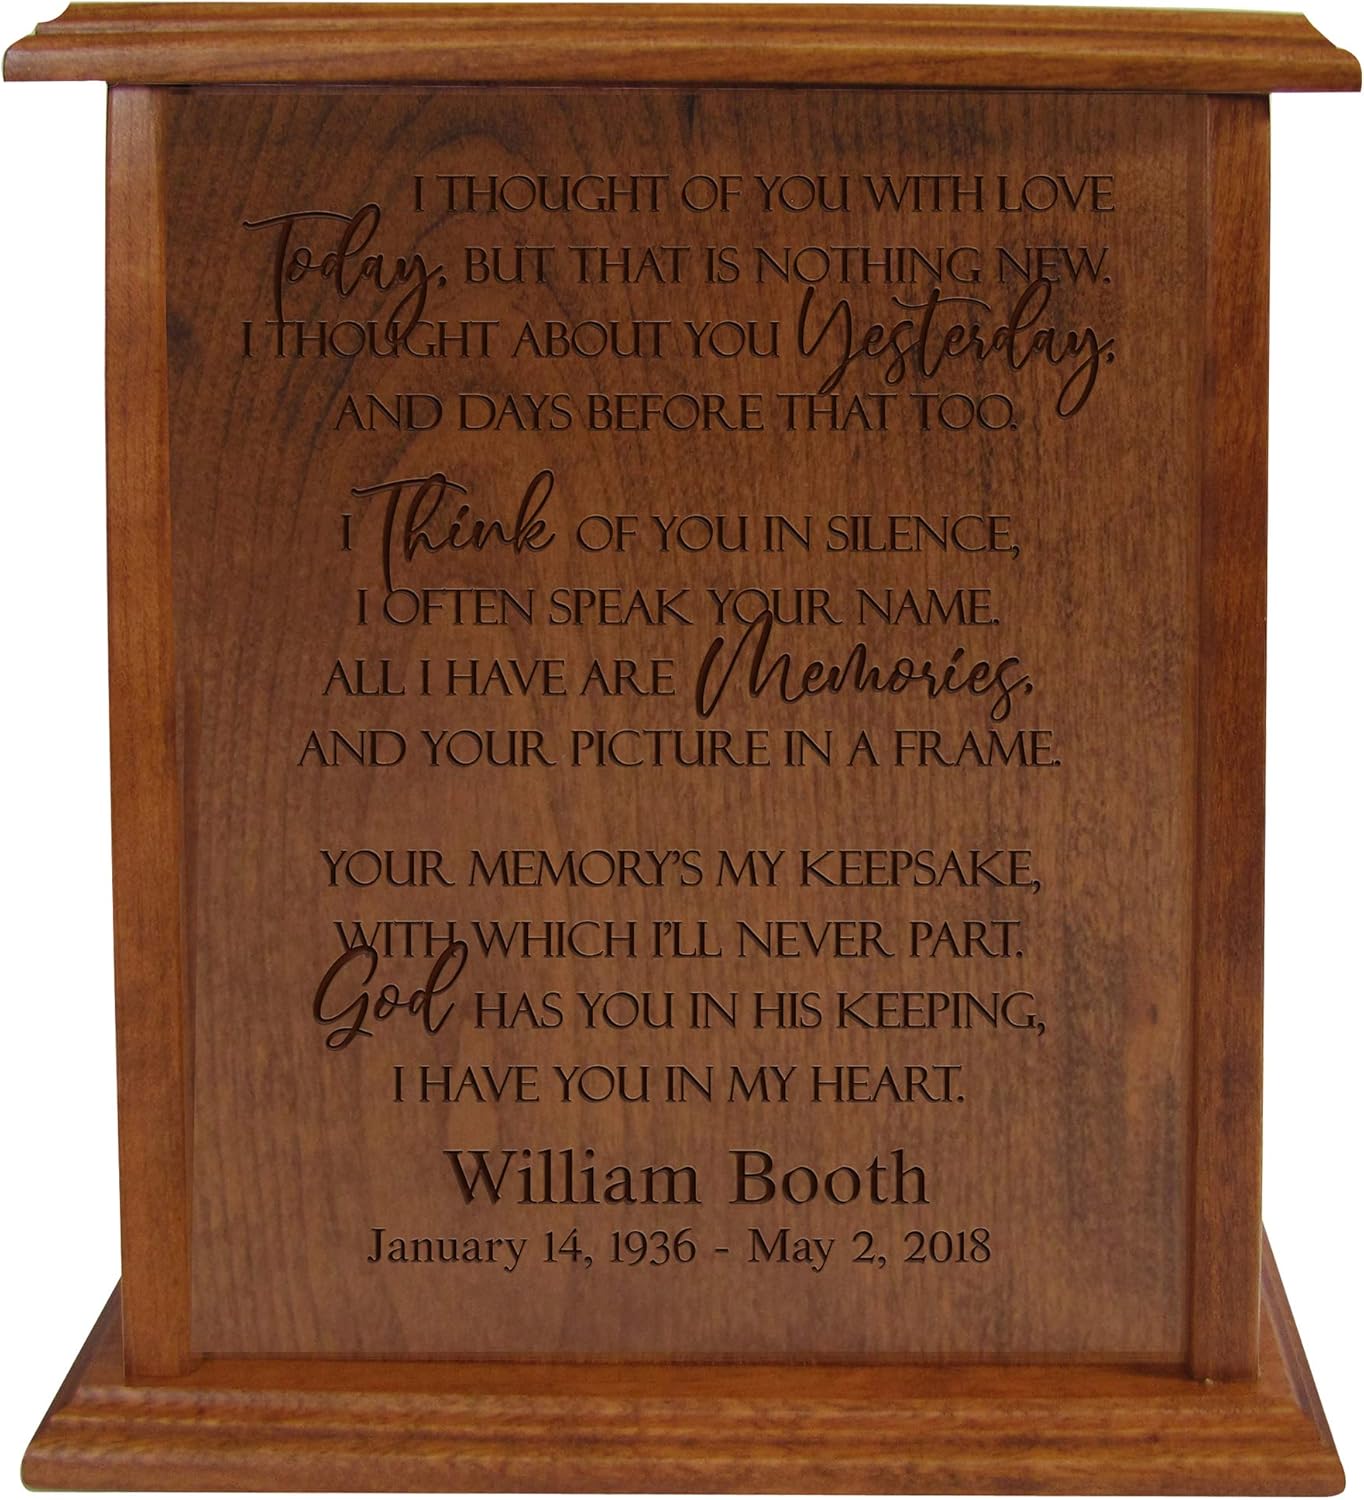 I THOUGHT OF YOU WITH LOVE
Today, BUT THAT IS NOTHING NEW.
I THOUGHT ABOUT YOU Yesterday,
AND DAYS BEFORE THAT TOO.
I Think OF YOU IN SILENCE,
I OFTEN SPEAK YOUR NAME.
ALL I HAVE ARE Memories,
AND YOUR PICTURE IN A FRAME.
YOUR MEMORY'S MY KEEPSAKE,
WITH WHICH I'LL NEVER PART.
God HAS YOU IN HIS KEEPING,
I HAVE YOU IN MY HEART.
William Booth
January 14, 1936 - May 2, 2018